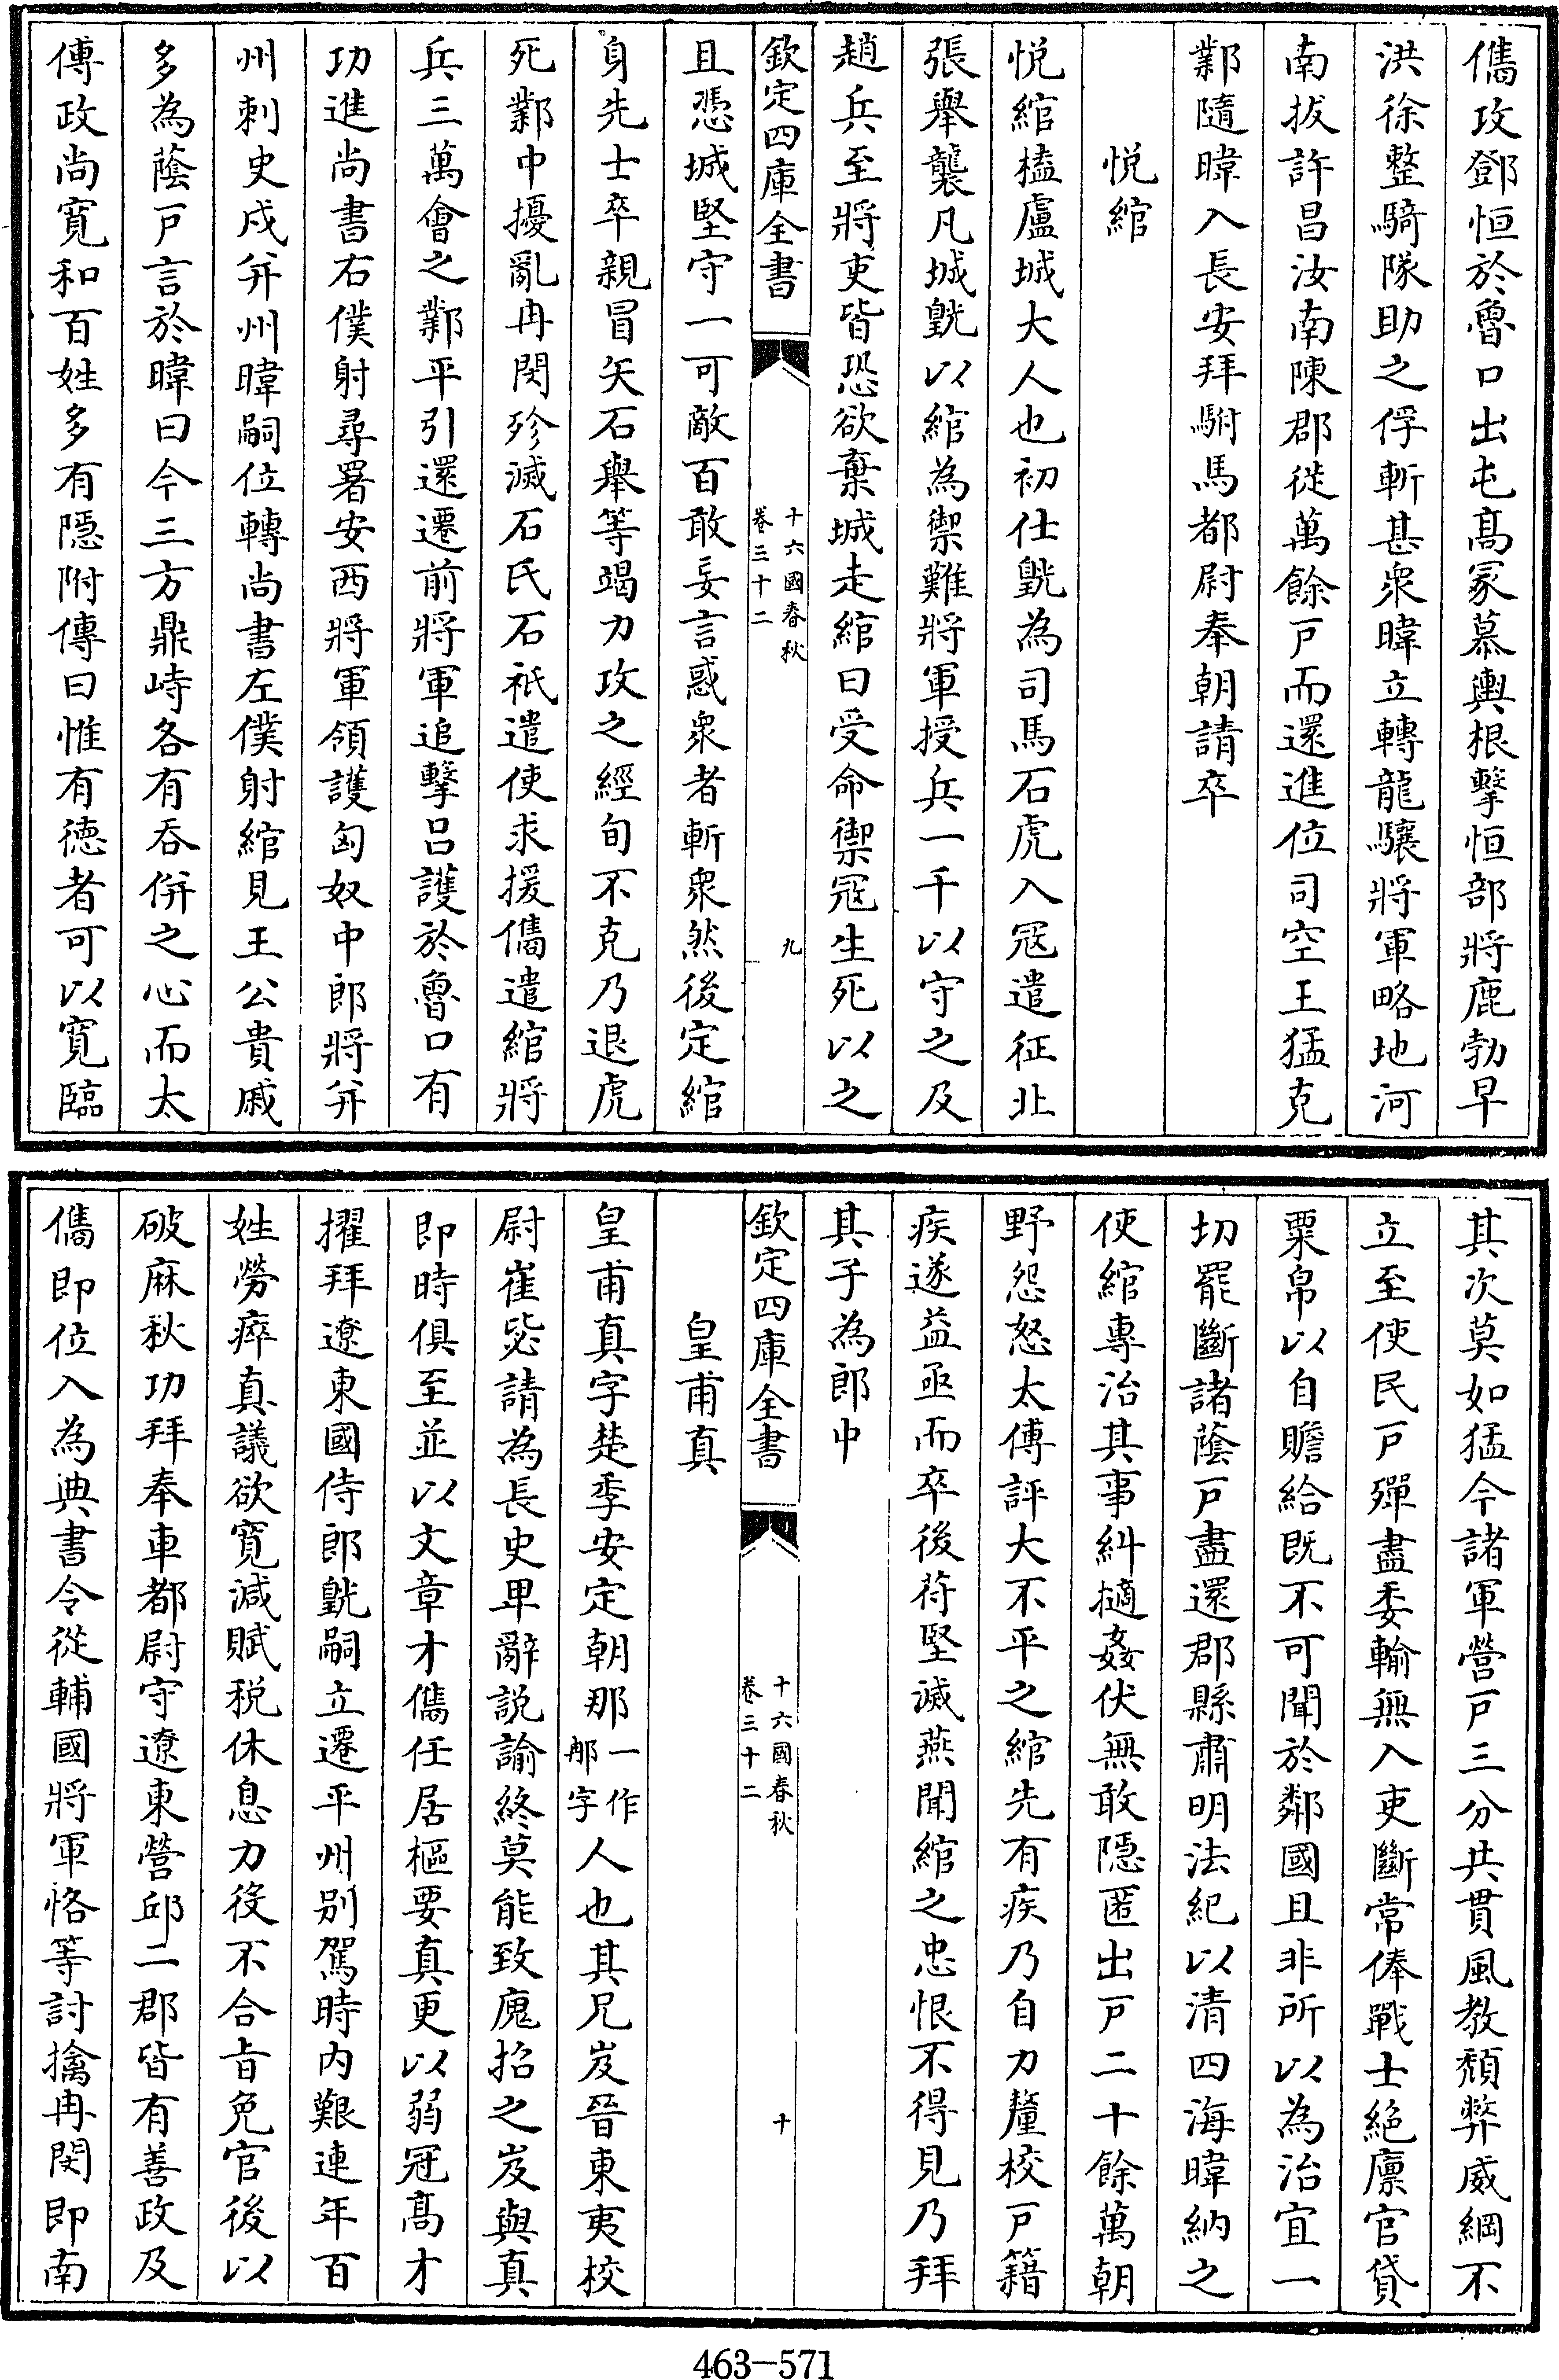 儁攻鄧恒於魯口出屯髙冢慕輿根擊恒部將鹿勃早
洪徐整騎隊助之俘斬甚衆暐立轉龍驤將軍略地河
南拔許昌汝南陳郡徙萬餘戸而還進位司空王猛克
鄴隨暐入長安拜駙馬都尉奉朝請卒
悦綰
悦綰榼盧城大人也初仕皝為司馬石虎入冦遣征北
張舉襲凡城皝以綰為禦難將軍授兵一千以守之及
趙兵至將吏皆恐欲棄城走綰曰受命禦冦生死以之
欽定四庫全書
十六國春秋
卷三十二
九
且憑城堅守一可敵百敢妄言惑衆者斬衆然後定綰
身先士卒親冒矢石舉等竭力攻之經旬不克乃退虎
死鄴中擾亂冉閔殄滅石氏石祇遣使求援儁遣綰將
兵三萬會之鄴平引還遷前將軍追擊吕護於魯口有
功進尚書右僕射尋署安西將軍領護匈奴中郎將并
州刺史戍并州暐嗣位轉尚書左僕射綰見王公貴戚
多為蔭戸言於暐曰今三方鼎峙各有吞併之心而太
傅政尚寛和百姓多有隠附傳曰惟有徳者可以寛臨
其次莫如猛今諸軍營戸三分共貫風教頽弊威綱不
立至使民戸殫盡委輸無入吏斷常俸戰士絶廪官貸
粟帛以自贍給既不可聞於鄰國且非所以為治宜一
切罷斷諸蔭戸盡還郡縣肅明法紀以清四海暐納之
使綰專治其事糾擿姦伏無敢隠匿出戸二十餘萬朝
野怨怒太傅評大不平之綰先有疾乃自力釐校戸籍
疾遂益亟而卒後苻堅滅燕聞綰之忠恨不得見乃拜
其子為郎中
欽定四庫全書
十六國春秋
卷三十二
十
皇甫真
皇甫真字楚季安定朝那一作䎟字人也其兄岌晉東夷校
尉崔毖請為長史卑辭説諭終莫能致廆招之岌與真
即時俱至並以文章才儁任居樞要真更以弱冠髙才
擢拜遼東國侍郎皝嗣立遷平州别駕時内艱連年百
姓勞瘁真議欲寛減賦税休息力役不合㫖免官後以
破麻秋功拜奉車都尉守遼東營邱二郡皆有善政及
儁即位入為典書令從輔國將軍恪等討擒冉閔即南
463-571